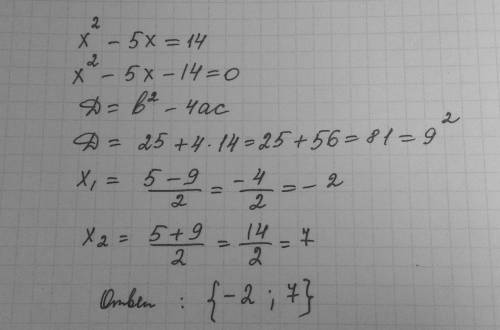 x² - 5x = 14
x² - 5x - 14 = 0
D = b² - 4ac
D = 25 + 4 · 14 = 25 + 56 = 81 = 9²
x₁ = (5 - 9)/2 = -4/2 = -2
x₂ = (5 + 9)/2 = 14/2 = 7
Ответ : {-2 ; 7}